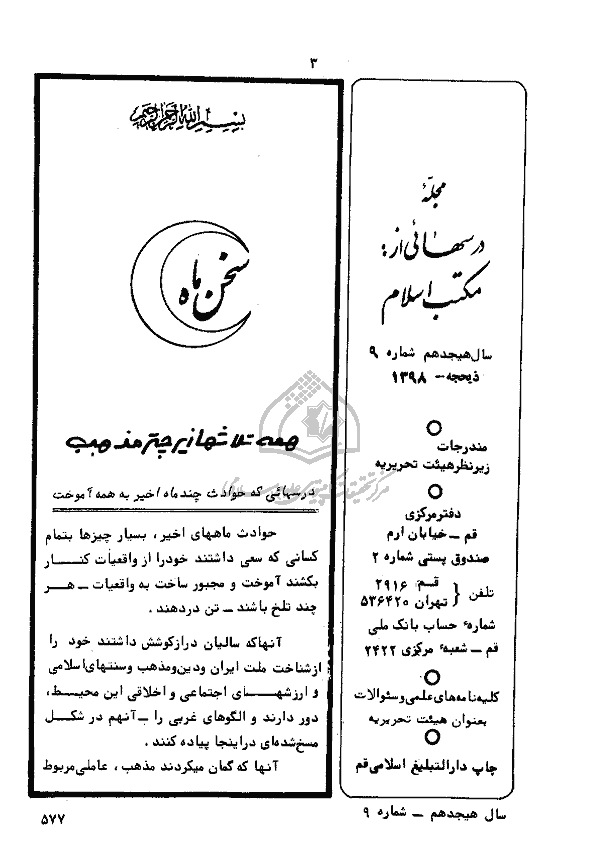 ۳
مجلّهٔ
درسهائی از:
مکتب اسلام
سال هیجدهم شماره ۹
ذیحجه – ۱۳۹۸
مندرجات
زیرنظر هیئت تحریریه
دفتر مرکزی
قم – خیابان ارم
صندوق پستی شماره ۲
تلفن { قم ۲۹۱۶
تهران ۵۳۶۴۲۰
شمارهٔ حساب بانک ملی
قم – شعبهٔ مرکزی ۲۴۲۲
کلیه‌نامه‌های علمی و سئوالات
بعنوان هیئت تحریریه
چاپ دارالتبلیغ اسلامی قم
بسم الله الرحمن الرحیم
سخن ماه
همه تلاشها زیر چتر مذهب
درسهائی که حوادث چند ماه اخیر به همه آموخت
حوادث ماههای اخیر، بسیار چیزها بتمام
کسانی که سعی داشتند خود را از واقعیات کنار
بکشند آموخت و مجبور ساخت به واقعیات – هر
چند تلخ باشند – تن دردهند .
آنها که سالیان دراز کوشش داشتند خود را
از شناخت ملت ایران ودین‌ومذهب وسنتهای‌اسلامی
و ارزشهای اجتماعی و اخلاقی این محیط،
دور دارند و الگوهای غربی را – آنهم در شکل
مسخ‌شده‌ای دراینجا پیاده کنند .
آنها که گمان میکردند مذهب، عاملی‌مربوط
سال هیجدهم – شماره ۹
۵۷۷